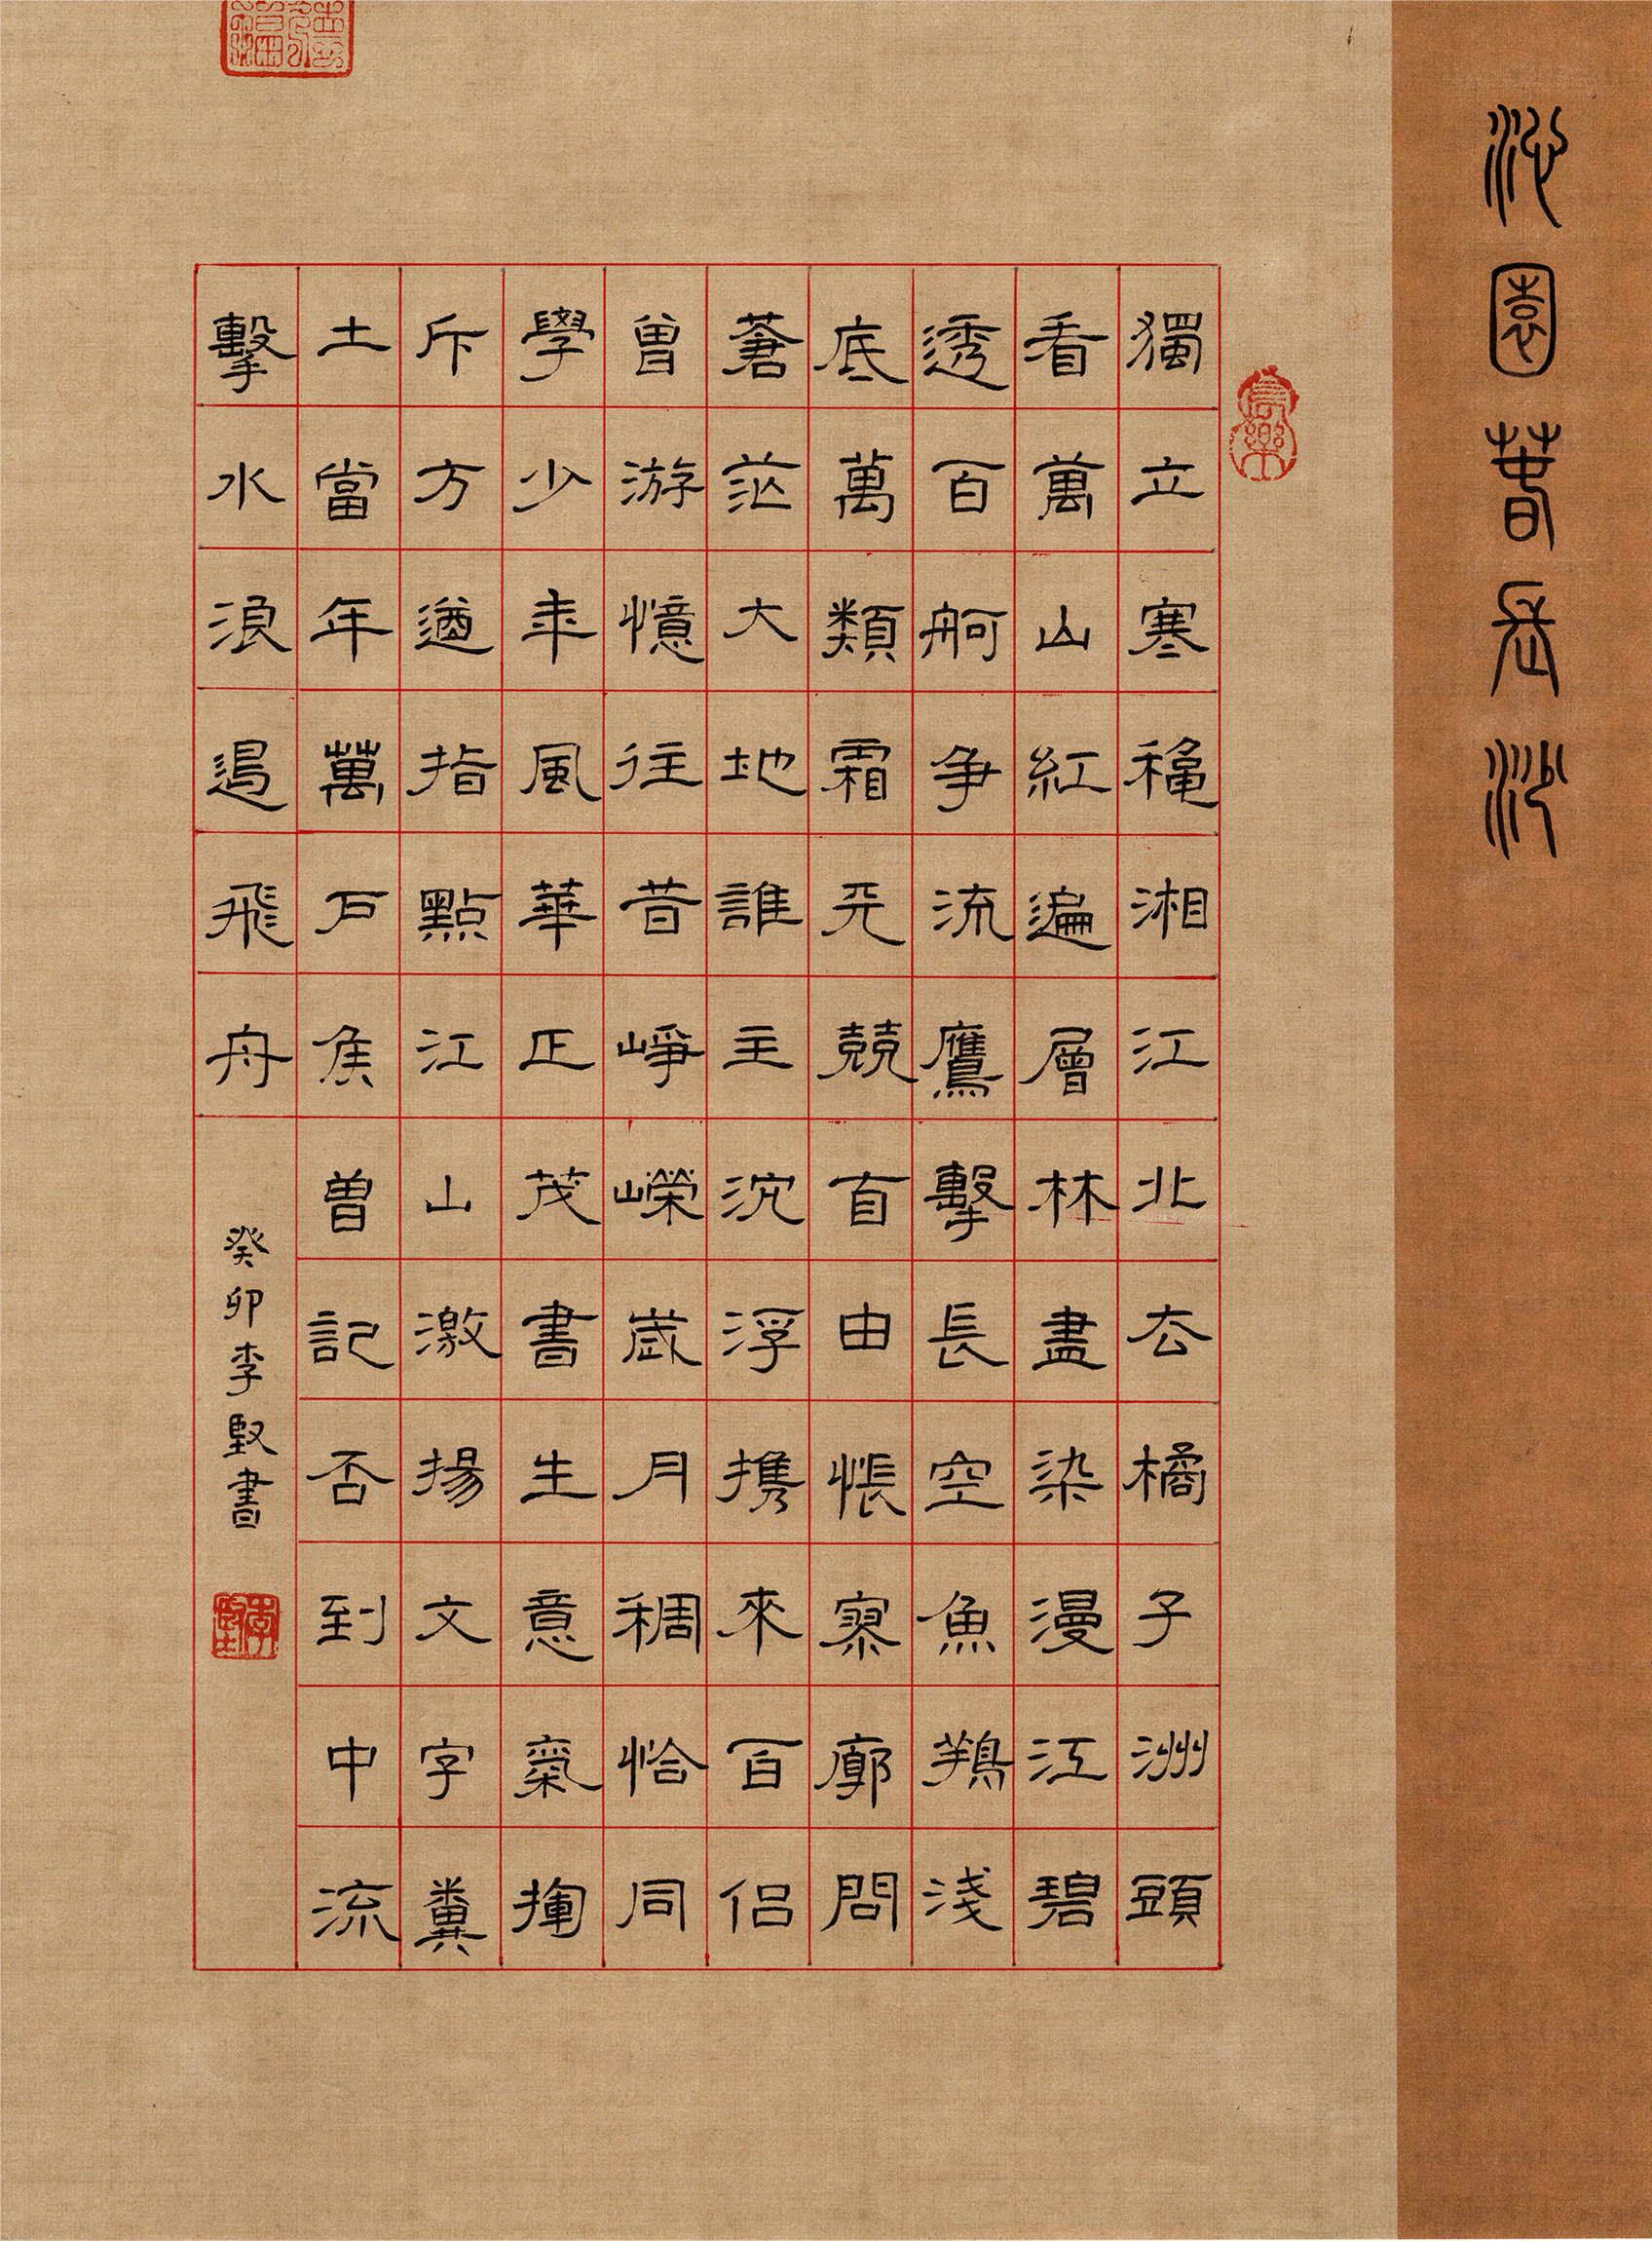 沁園春長沙
獨立寒穐湘江北去橘子洲頭
看萬山紅遍層林盡染漫江碧
透百舸爭流鷹擊長空魚鶄淺
底萬類霜天競自由悵寥廓問
蒼茫大地誰主沉浮携來百侶
曾游憶往昔崢嶸歲月稠恰同
學少年風華正茂書生意氣揮
斥方遒指點江山激揚文字糞
土當年萬戶矦曾記否到中流
擊水浪遏飛舟
癸卯李堅書
李堅